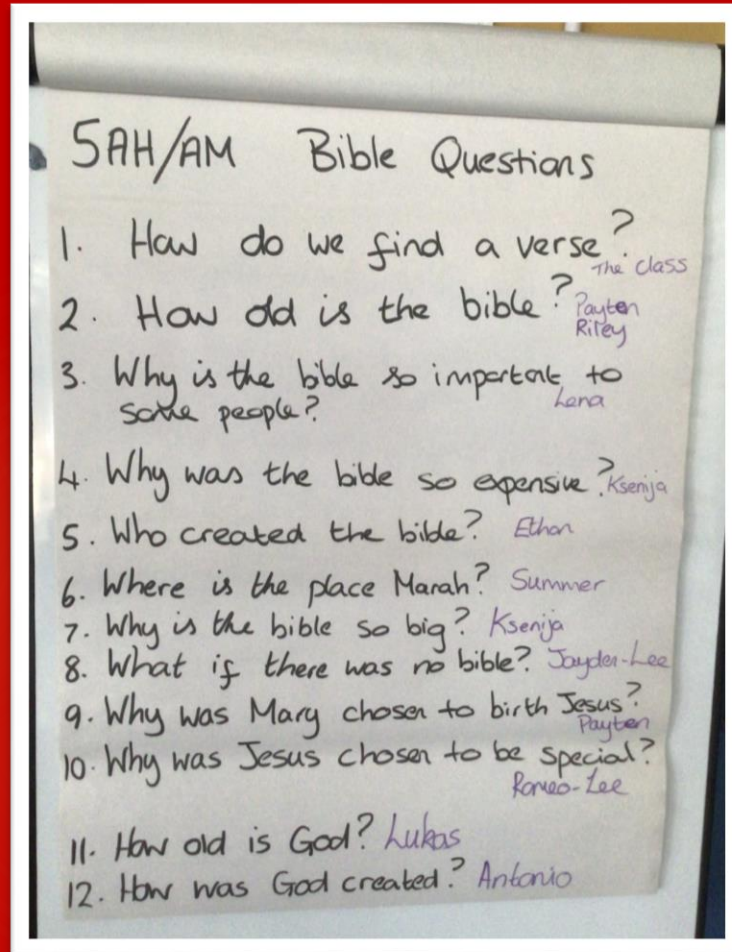 5AH/AM Bible Questions
1. How do we find a verse?
The class
2. How old is the bible? Payten
Riley
3. Why is the bible so important to
some people? Lena
4. Why was the bible so expensive? Ksenija
5. Who created the bible? Ethan
6. Where is the place Marah? Summer
7. Why is the bible so big? Ksenija
8. What if there was no bible? Jayden-Lee
9. Why was Mary chosen to birth Jesus?
Payten
10. Why was Jesus chosen to be special?
Romeo-Lee
11. How old is God? Lukas
12. How was God created? Antonio